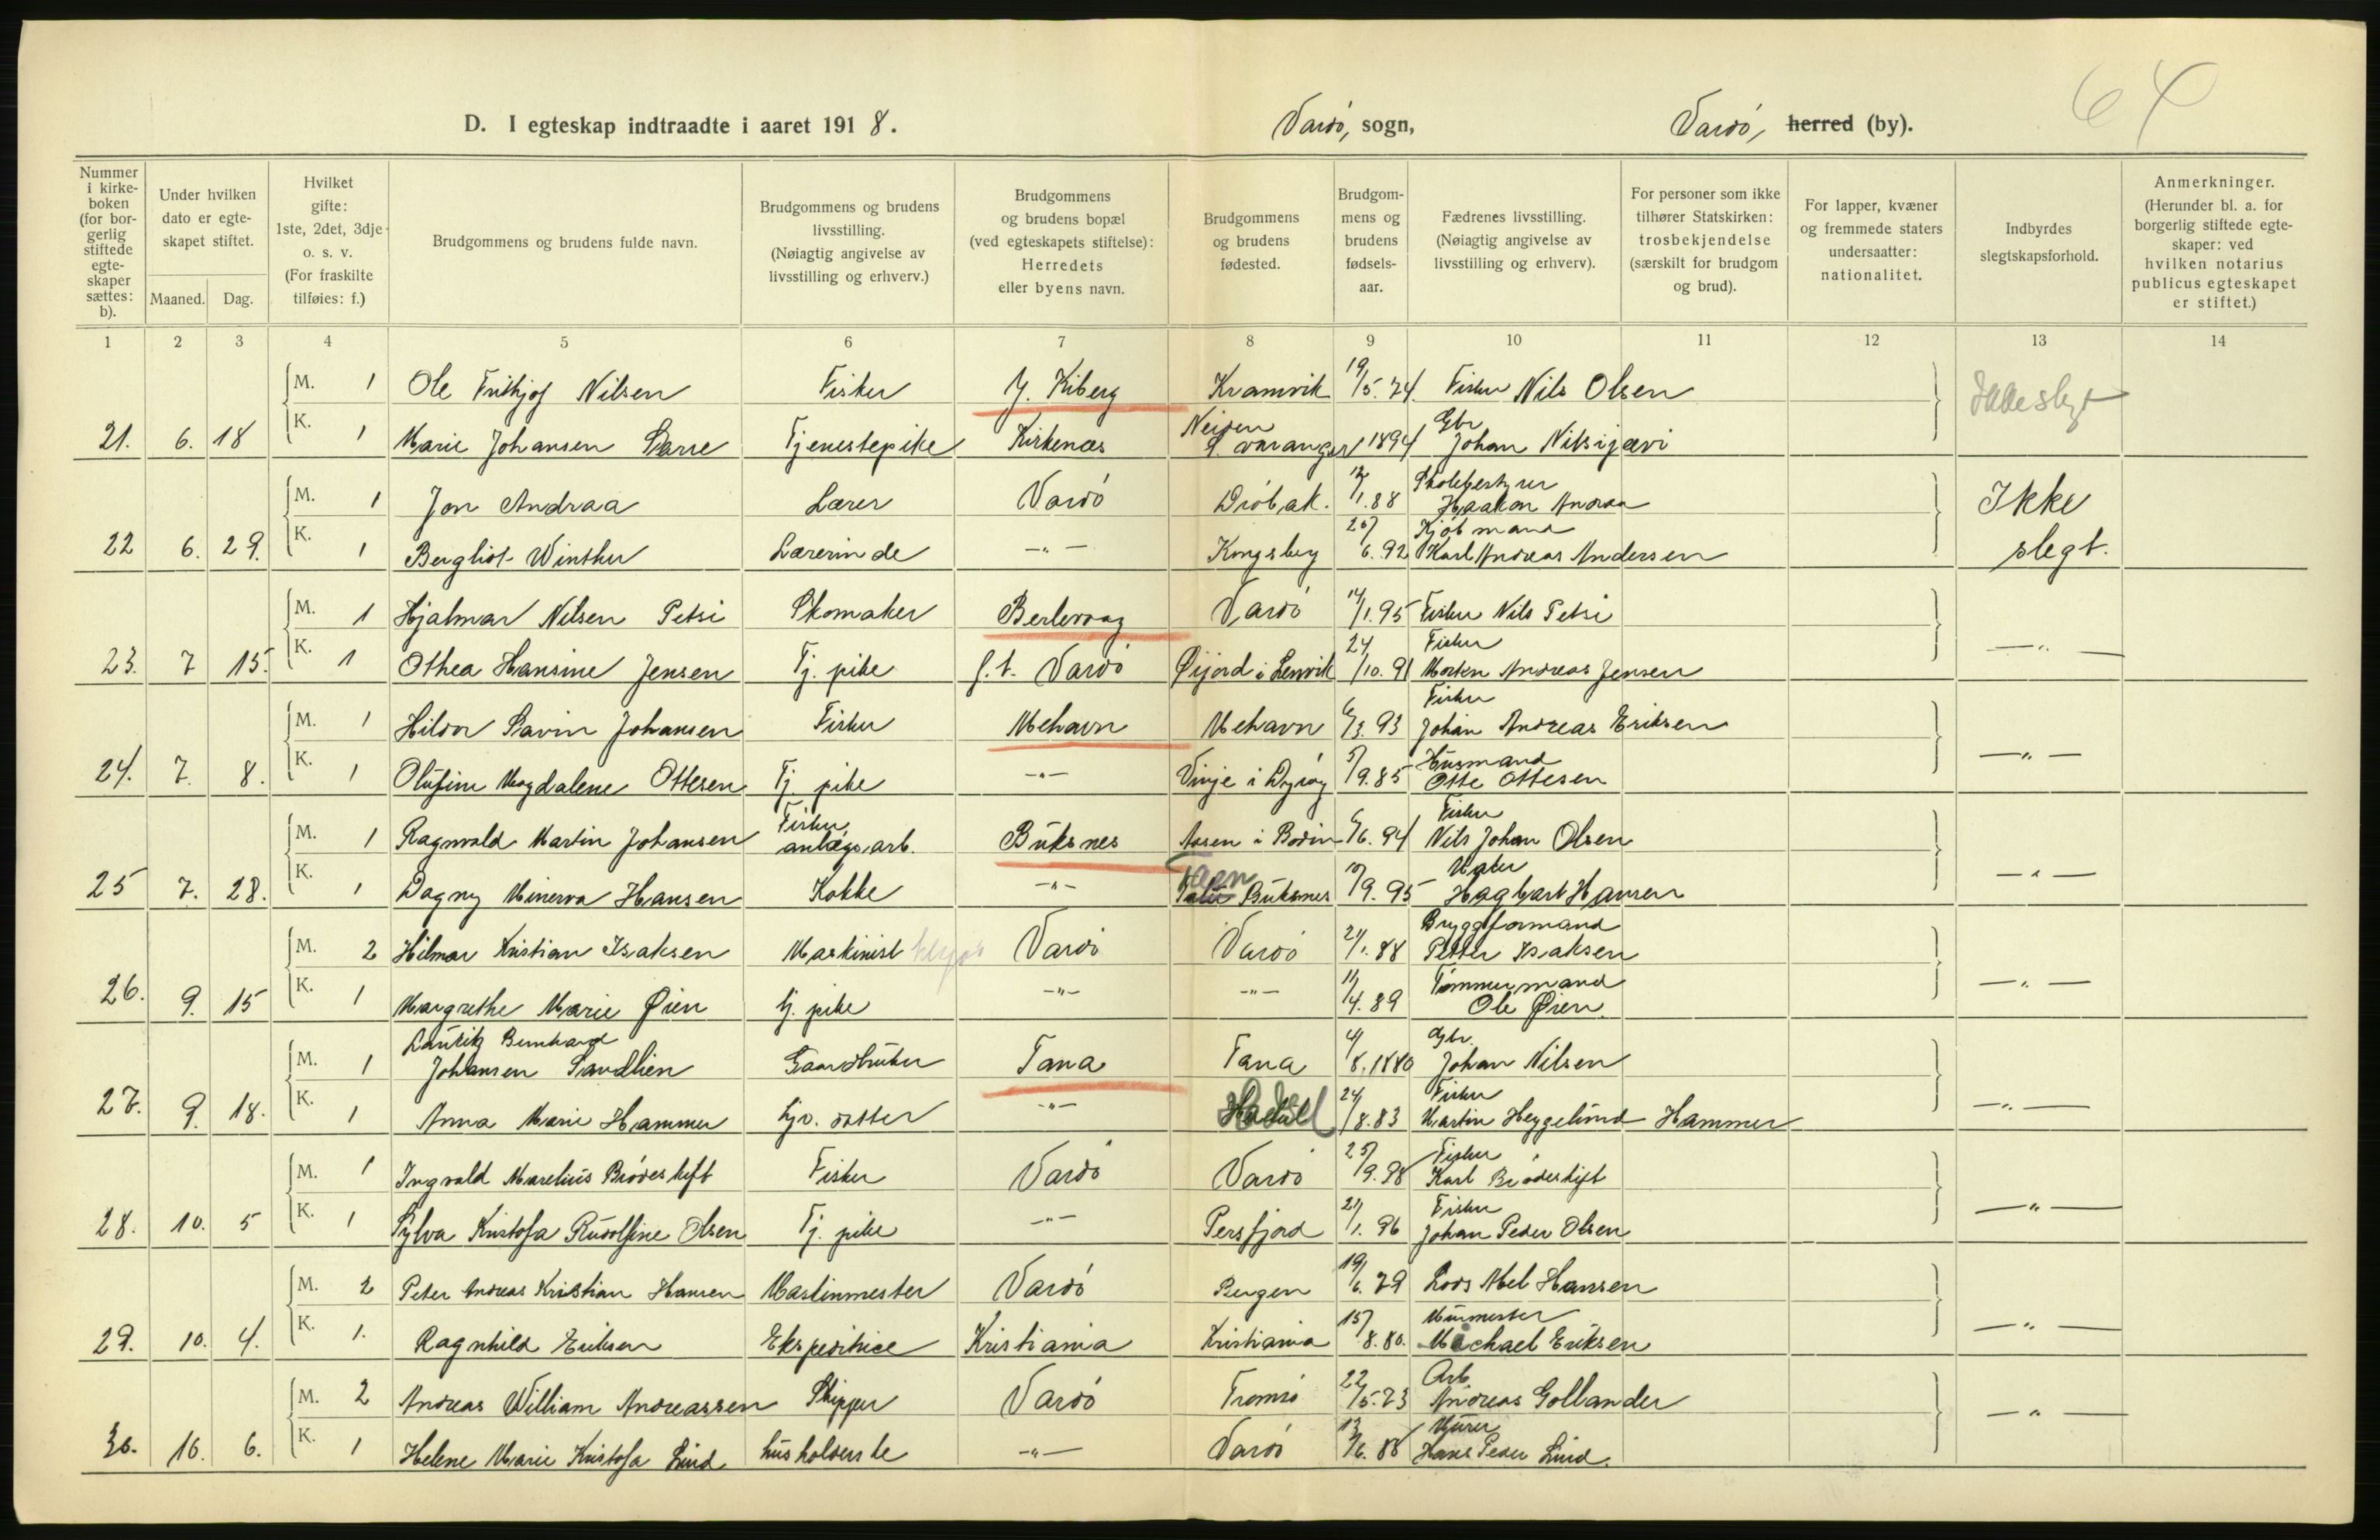 64
D. I egteskap indtraadte i aaret 1918. Vardö, sogn, Vardö, herred (by).
Nummer i kirkeboken (for borgerlig stiftede egteskaper sættes: b).
Under hvilken dato er egteskapet stiftet.
Maaned. Dag.
Hvilket gifte: 1ste, 2det, 3dje o. s. v. (For fraskilte tilføies: f.)
Brudgommens og brudens fulde navn.
Brudgommens og brudens livsstilling. (Nøiagtig angivelse av livsstilling og erhverv.)
Brudgommens og brudens bopæl (ved egteskapets stiftelse): Herredets eller byens navn.
Brudgommens og brudens fødested.
Brudgommens og brudens fødselsaar.
Fædrenes livsstilling. (Nøiagtig angivelse av livsstiling og erhverv).
For personer som ikke tilhører Statskirken: trosbekjendelse (særskilt for brudgom og brud).
For lapper, kvæner og fremmede staters undersaatter: nationalitet.
Indbyrdes slegtskapsforhold.
Anmerkninger. (Herunder bl. a. for borgerlig stiftede egteskaper: ved hvilken notarius publicus egteskapet er stiftet.)
1 2 3 4 5 6 7 8 9 10 11 12 13 14
M. 1 Ole Frithjof Nilsen Fisker Y. Kiberg Kramvik 19/5. 74. Fisker Nils Olsen Ikke slegt
21. 6. 18 K. 1 Marie Johansen Tjenestepike Kirkenæs Neiden S. varanger 1894 Gbr Johan
M. 1 Jon Andraa Lærer Vardö Dröbak. 12/1. 88 Skolebestyrer Haakon Andraa Ikke
22 6. 29. K. 1 Bergliot Winther Lærerinde —"— Kongsberg 26/6. 92 Kjöbmand Karl Andreas Andersen slegt.
M. 1 Hjalmar Nilsen Petsi Skomaker Berlevaag Vardö 14/1. 95 Fisker Nils Petsi
23. 7 15. K. 1 Othea Hansine Jensen Tj. pike f. t. Vardö Øijord i Lenvik 24/10. 91 Fisker Morten Andreas Jensen —"—
M. 1 Hildor Johansen Fisker Mehavn Mehavn 6/3. 93 Fisker Johan Andreas Eriksen
24. 7. 8. K. 1 Olufine Magdalene Ottesen Tj. pike —"— Vinje i Dyröy 5/9. 85 Husmand Otte Ottesen —"—
M. 1 Ragnvald Martin Johansen Fisker anlægsarb. Buksnes Aasen i Bodin 6/6. 94 Fisker Nils Johan Olsen
25 7. 28. K. 1 Dagny Minerva Hansen Kokke —"— Buksnes 10/9. 95 Maler Hagbart Hansen —"—
M. 2 Hilmar Kristian Isaksen Maskinist Vardö Vardö 21/1. 88 Bryggformand Petter Isaksen
26. 9. 15 K. 1 Margrethe Marie Øien tj. pike —"— —"— 11/4. 89 Tømmermand Ole Øien. —"—
M. 1 Lauritz Bernhard Johansen Sandlien Gaardbruker Tana Tana 4/8. 1880 Gbr. Johan Nilsen
27. 9. 18. K. 1 Anna Marie Hammer hjv. datter —"— Hadsel 24/8. 83 Fisker Martin Heggelund Hammer —"—
M. 1 Ingvald Marelius Brödeskift Fisker Vardö Vardö 25/9. 98 Fisker Karl Brödeskift
28. 10. 5 K. 1 Sylva Kristofa Rudolfine Olsen Tj. pike —"— Persfjord 21/1. 96 Fisker Johan Peder Olsen —"—
M. 2 Peter Andreas Kristian Hansen Maskinmester Vardö Bergen 19/6. 79 Lods Abel Hansen
29. 10. 4. K. 1. Ragnhild Eriksen Ekspeditrice Kristiania Kristiania 15/8. 80. Murmester Michael Eriksen —"—
M. 2 Andreas William Andreassen Skipper Vardö Tromsö 22/5. 73 Arb. Andreas Gollander
30. 10. 6. K. 1 Helene Marie Kristofa Lind husholderske —"— Vardö 13/6. 88 Murer Hans Peder Lind. —"—